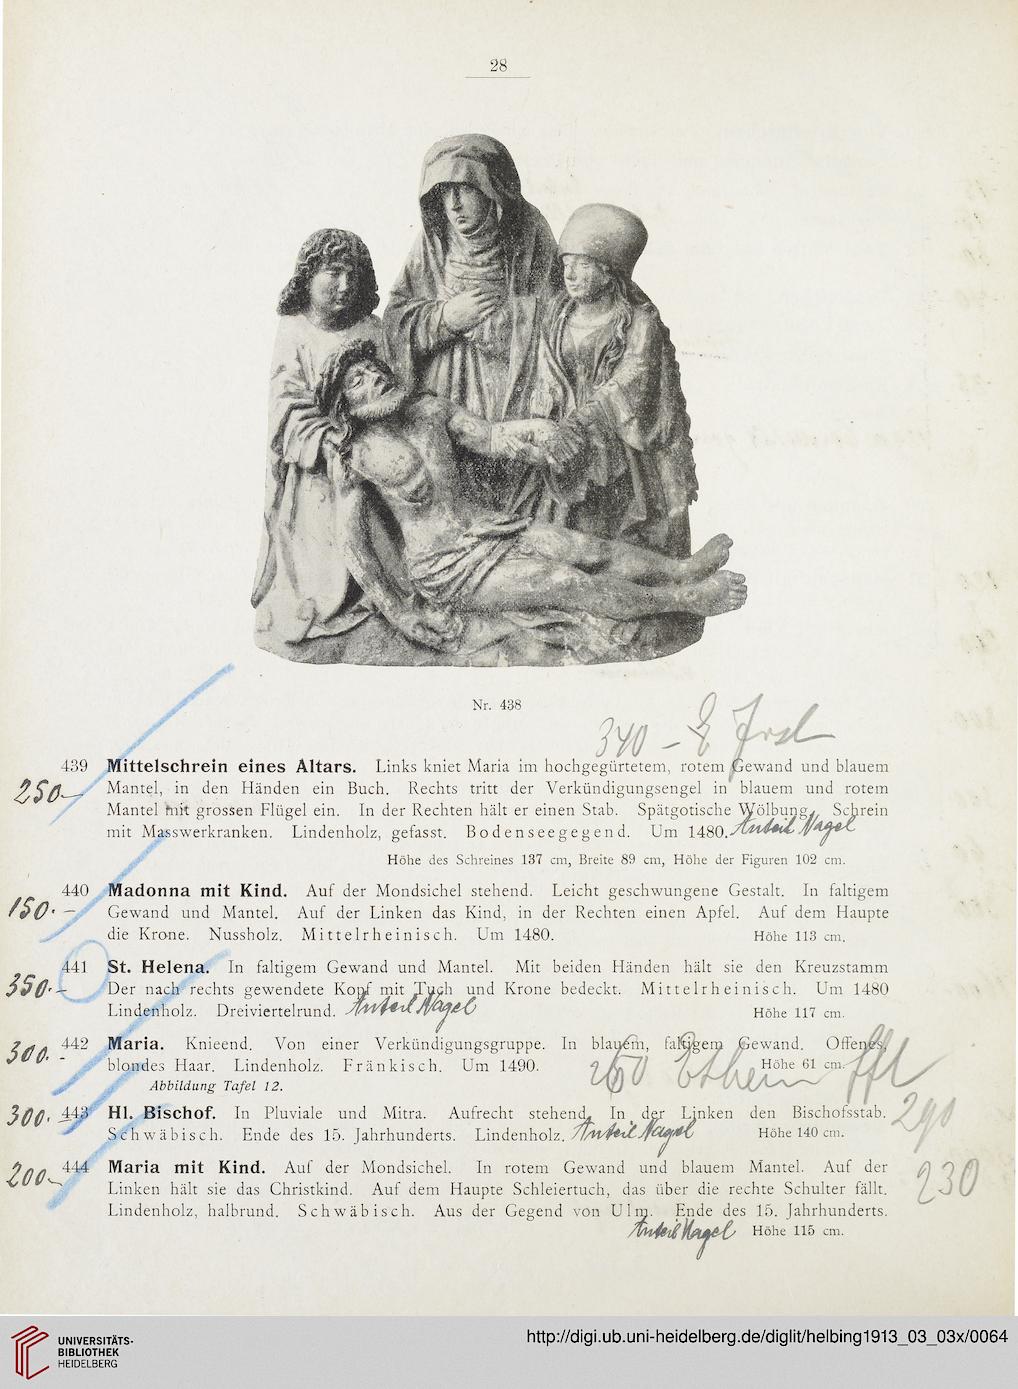 28
Nr. 438
340 –
439 Mittelschrein eines Altars. Links kniet Maria im hochgegürtetem, rotem Gewand und blauem
250.— Mantel, in den Händen ein Buch. Rechts tritt der Verkündigungsengel in blauem und rotem
Mantel mit grossen Flügel ein. In der Rechten hält er einen Stab. Spätgotische Wölbung. Schrein
mit Masswerkranken. Lindenholz, gefasst. Bodenseegegend. Um 1480. Anteil Nagel
Höhe des Schreines 137 cm, Breite 89 cm, Höhe der Figuren 102 cm.
440 Madonna mit Kind. Auf der Mondsichel stehend. Leicht geschwungene Gestalt. In faltigem
150.– Gewand und Mantel. Auf der Linken das Kind, in der Rechten einen Apfel. Auf dem Haupte
die Krone. Nussholz. Mittelrheinisch. Um 1480. Höhe 113 cm.
441 St. Helena. In faltigem Gewand und Mantel. Mit beiden Händen hält sie den Kreuzstamm
350.– Der nach rechts gewendete Kopf mit Tuch und Krone bedeckt. Mittelrheinisch. Um 1480
Lindenholz. Dreiviertelrund. Anteil Nagel Höhe 117 cm.
300.– 442 Maria. Knieend. Von einer Verkündigungsgruppe. In blauem, faltigem Gewand. Offenes,
blondes Haar. Lindenholz. Fränkisch. Um 1490. 260 Höhe 61 cm.
Abbildung Tafel 12.
300.– 443 Hl. Bischof. In Pluviale und Mitra. Aufrecht stehend. In der Linken den Bischofsstab. 290
Schwäbisch. Ende des 15. Jahrhunderts. Lindenholz. Anteil Nagel Höhe 140 cm.
200.– 444 Maria mit Kind. Auf der Mondsichel. In rotem Gewand und blauem Mantel. Auf der 230
Linken hält sie das Christkind. Auf dem Haupte Schleiertuch, das über die rechte Schulter fällt.
Lindenholz, halbrund. Schwäbisch. Aus der Gegend von Ulm. Ende des 15. Jahrhunderts.
Anteil Nagel Höhe 115 cm.
UNIVERSITÄTS-
BIBLIOTHEK
HEIDELBERG
http://digi.ub.uni-heidelberg.de/diglit/helbing1913_03_03x/0064